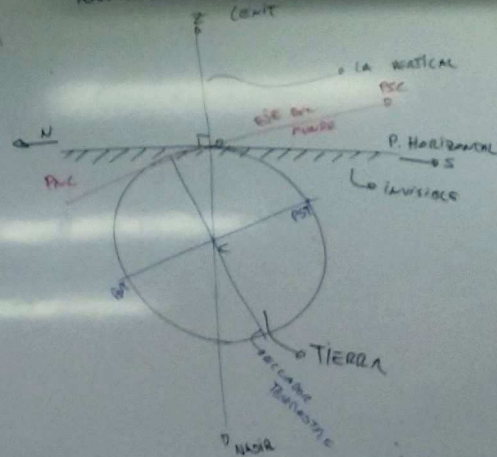 Z CENIT
LA VERTICAL
PSC
EJE DEL
MUNDO
N
P. HORIZONTAL
S
INVISIBLE
PNC
PST
C
TIERRA
ECUADOR
TERRESTRE
NADIR